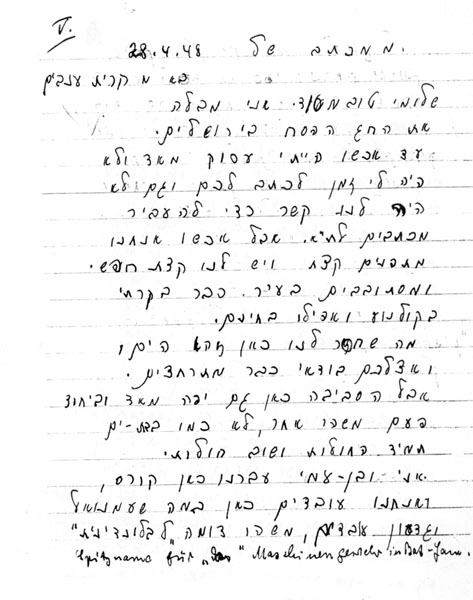 V.
ממכתב של 28.4.48
בא מקרית ענבים
שלומי טוב מאוד. אני מבלה
את החג הפסח בירושלים.
עד אכשו הייתי עסוק מאד ולא
היה לי זמן לכתב לכם וגם לא
היה לנו קשר כדי להעביר
מכתבים לת"א. אבל אכשו אנחנו
מתפנים קצת ויש לנו קצת חופשי
ומסתובבים בעיר. כבר בקרתי
בקולנוע ואפילו בחינם.
מה שחסר לנו כאן זהו הים ו
ואצלכם בודאי כבר מתרחצים.
אבל הסביבה כאן גם יפה מאד וביחוד
פעם משהו אחר, לא כמו בבת-ים
תמיד החולות ושוב חולות.
אני ובן-עמי עברנו כאן קורס,
ואנחנו עובדים כאן במה שעמנואל
וגדעון עובדים, משהו דומה "לבלונדינית"
Spitzname für "das" Maschinengewehr in Bat-Jam.